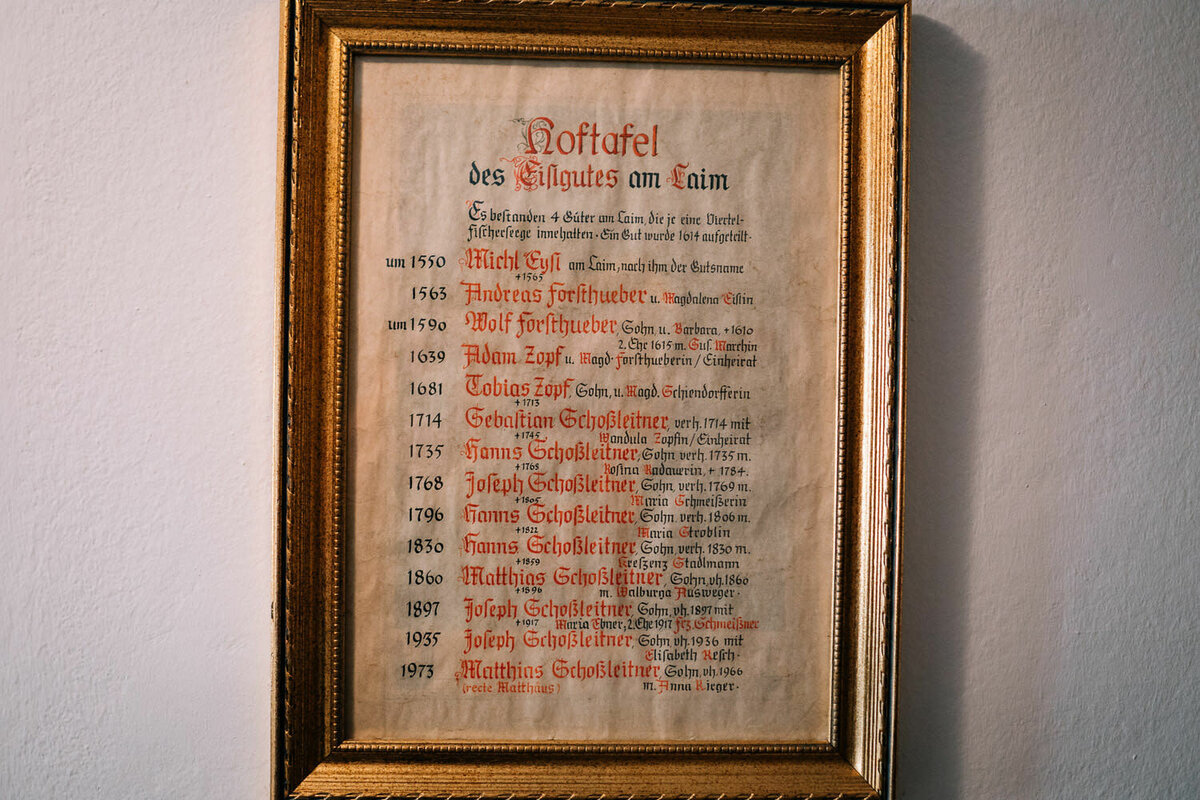 Hoftafel
des Eislgutes am Laim
Es bestanden 4 Güter am Laim, die je eine Viertel-
fischerseege innehatten · Ein Gut wurde 1614 aufgeteilt ·
um 1550 Michl Eysl am Laim, nach ihm der Gutsname
+1565
1563 Andreas Forsthueber u. Magdalena Eislin
um 1590 Wolf Forsthueber, Sohn, u. Barbara, +1610
2. Ehe 1615 m. Gus. Marchin
1639 Adam Zopf u. Magd. Forsthueberin / Einheirat
1681 Tobias Zopf, Sohn, u. Magd. Schiendorfferin
+1713
1714 Sebastian Schoßleitner, verh. 1714 mit
+1745 Wandula Zopfin / Einheirat
1735 Hanns Schoßleitner, Sohn verh. 1735 m.
+1768 Rosina Radauerin, + 1784.
1768 Joseph Schoßleitner, Sohn, verh. 1769 m.
+1805 Maria Schmeißerin
1796 Hanns Schoßleitner, Sohn, verh. 1806 m.
+1822 Maria Stroblin
1830 Hanns Schoßleitner, Sohn, verh. 1830 m.
+1859 Kreszenz Stadlmann
1860 Matthias Schoßleitner, Sohn, vh. 1860
+1896 m. Walburga Ausweger ·
1897 Joseph Schoßleitner, Sohn, vh. 1897 mit
+1917 Maria Ebner, 2. Ehe 1917 Frz. Schmeißner
1935 Joseph Schoßleitner, Sohn, vh. 1936 mit
Elisabeth Resch ·
1973 Matthias Schoßleitner, Sohn, vh. 1966
(recte Matthäus) m. Anna Rieger ·